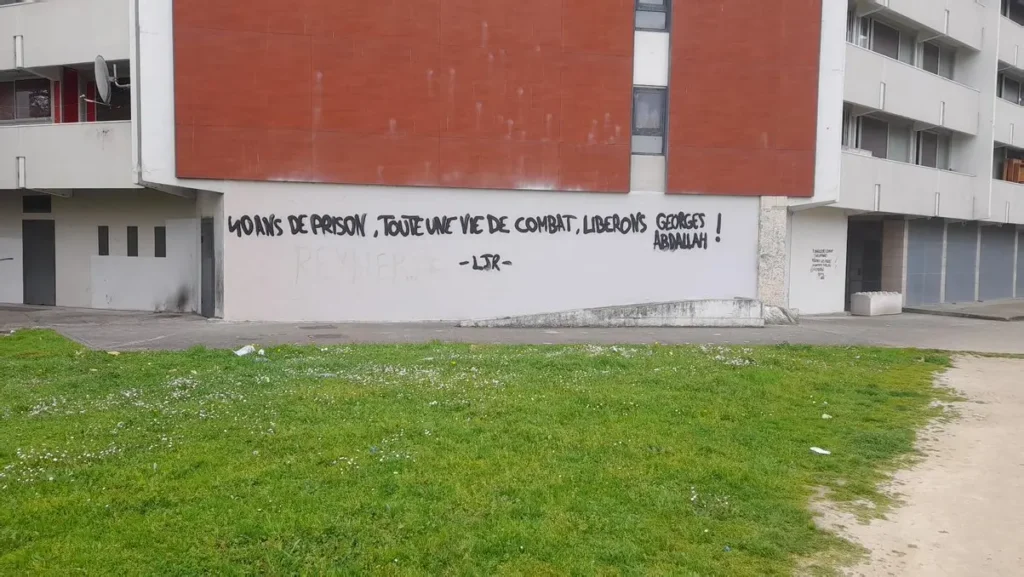 40 ANS DE PRISON, TOUTE UNE VIE DE COMBAT, LIBERONS GEORGES
ABDALLAH !
-LJR-